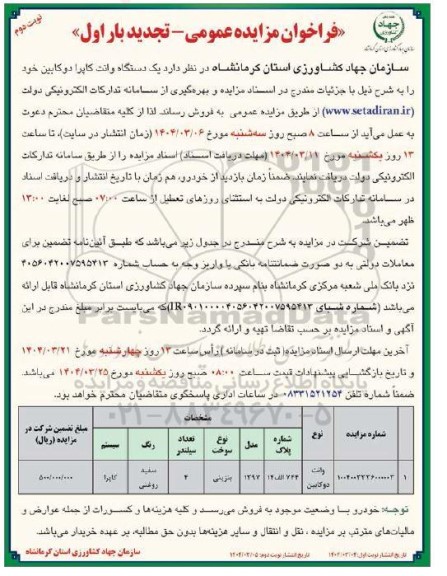 نوبت دوم
«فراخوان مزایده عمومی – تجدید بار اول»
جهاد کشاورزی
سازمان جهاد کشاورزی استان کرمانشاه در نظر دارد یک دستگاه وانت کاپرا دوکابین خود
را به شرح ذیل با جزئیات مندرج در اسناد مزایده و بهره‌گیری از سامانه تدارکات الکترونیکی دولت
(www.setadiran.ir) از طریق مزایده عمومی به فروش رساند. لذا از کلیه متقاضیان محترم دعوت
به عمل می‌آید از ساعت ۸ صبح روز سه‌شنبه مورخ ۱۴۰۴/۰۳/۰۶ (زمان انتشار در سایت)، تا ساعت
۱۳ روز یکشنبه مورخ ۱۴۰۴/۰۳/۱۱ (مهلت دریافت اسناد) اسناد مزایده را از طریق سامانه تدارکات
الکترونیکی دولت دریافت نمایند. ضمناً زمان بازدید از خودرو، هم زمان با تاریخ انتشار و دریافت اسناد
در سامانه تدارکات الکترونیکی دولت به استثنای روزهای تعطیل از ساعت ۰۷:۰۰ صبح لغایت ۱۳:۰۰
ظهر می‌باشد.
تضمین شرکت در مزایده به شرح مندرج در جدول زیر می‌باشد که طبق آئین‌نامه تضمین برای
معاملات دولتی به دو صورت ضمانتنامه بانکی یا واریز وجه به حساب شماره ۴۰۵۶۰۴۲۰۰۷۵۹۵۴۱۳
نزد بانک ملی شعبه مرکزی کرمانشاه بنام سپرده سازمان جهاد کشاورزی استان کرمانشاه قابل ارائه
می‌باشد (شماره شبای IR۰۹۰۱۰۰۰۰۴۰۵۶۰۴۲۰۰۷۵۹۵۴۱۳) که می‌بایست برابر مبلغ مندرج در این
آگهی و اسناد مزایده بر حسب تقاضا تهیه و ارائه گردد.
آخرین مهلت ارسال اسناد مزایده (ثبت در سامانه) رأس ساعت ۱۳ روز چهارشنبه مورخ ۱۴۰۴/۰۳/۲۱
و تاریخ بازگشایی پیشنهادات قیمت ساعت ۰۸:۰۰ صبح روز یکشنبه مورخ ۱۴۰۴/۰۳/۲۵ می‌باشد.
ضمناً شماره تلفن ۰۸۳۳۱۵۲۱۲۵۴ در ساعات اداری پاسخگوی متقاضیان محترم خواهد بود.
شماره مزایده نوع مشخصات مبلغ تضمین شرکت در مزایده (ریال)
شماره پلاک مدل نوع سوخت تعداد سیلندر رنگ سیستم
۱ ۱۰۰۴۰۰۳۳۳۶۰۰۰۰۰۳ وانت دوکابین ۷۳۴ الف ۱۴ ۱۳۹۷ بنزینی ۴ سفید روغنی کاپرا ۵۰۰/۰۰۰/۰۰۰
توجه: خودرو با وضعیت موجود به فروش می‌رسد و کلیه هزینه‌ها و کسورات از جمله عوارض و
مالیات‌های مترتب بر مزایده، نقل و انتقال و سایر هزینه‌ها بدون حق مطالبه، بر عهده خریدار می‌باشد.
تاریخ انتشار نوبت اول: ۱۴۰۴/۰۳/۰۴ تاریخ انتشار نوبت دوم: ۱۴۰۴/۰۳/۰۵ سازمان جهاد کشاورزی استان کرمانشاه
ParsNamadData
پایگاه اطلاع رسانی مناقصه و مزایده
۰۲۱-۸۸۳۴۹۶۷۰-۵